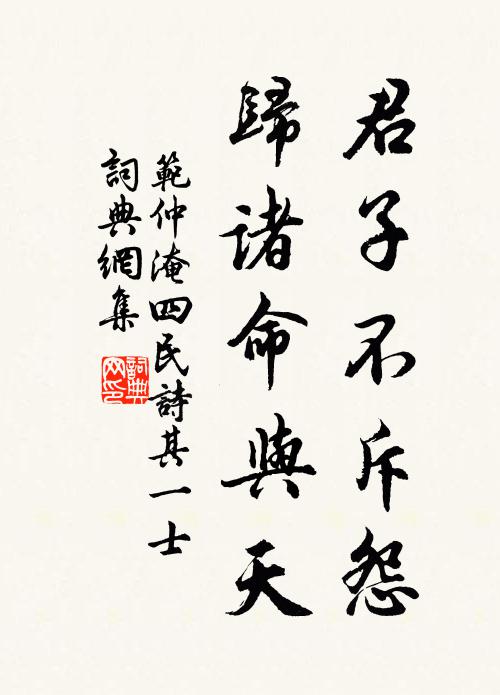 君子不斥怨
歸諸命與天
範仲淹四民詩其一士
詞典網集
詞典網印